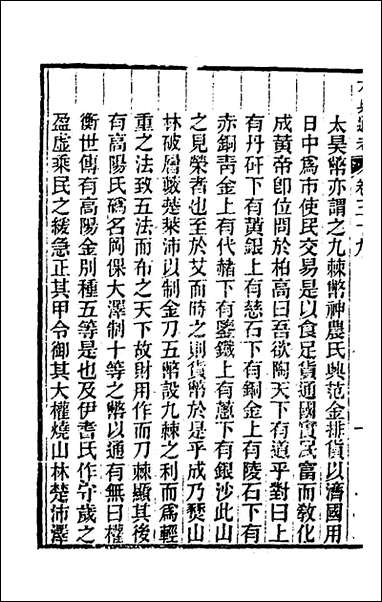 太昊幣亦謂之九棘幣神農氏興范金排貨以濟國用
日中爲市使民交易是以食足貨通國實民富而敎化
成黄帝卽位問於柏高曰吾欲陶天下有道乎對曰上
有丹矸下有黄銀上有慈石下有銅金上有陵石下有
赤銅靑金上有代赭下有鑒鐵上有蔥下有銀沙此山
之見榮者也至於艾而時之則貨幣於是乎成乃燹山
林破曾藪楚萊沛以制金刀五幣設九棘之利而爲輕
重之法致五法而布之天下故財用作而刀棘顯其後
有高陽氏碼名岡倮大澤制十等之幣以通有無曰權
衡世傳有高陽金别種五等是也及伊耆氏作守歲之
盈虛乘民之緩急正其甲令御其大權燒山林楚沛澤